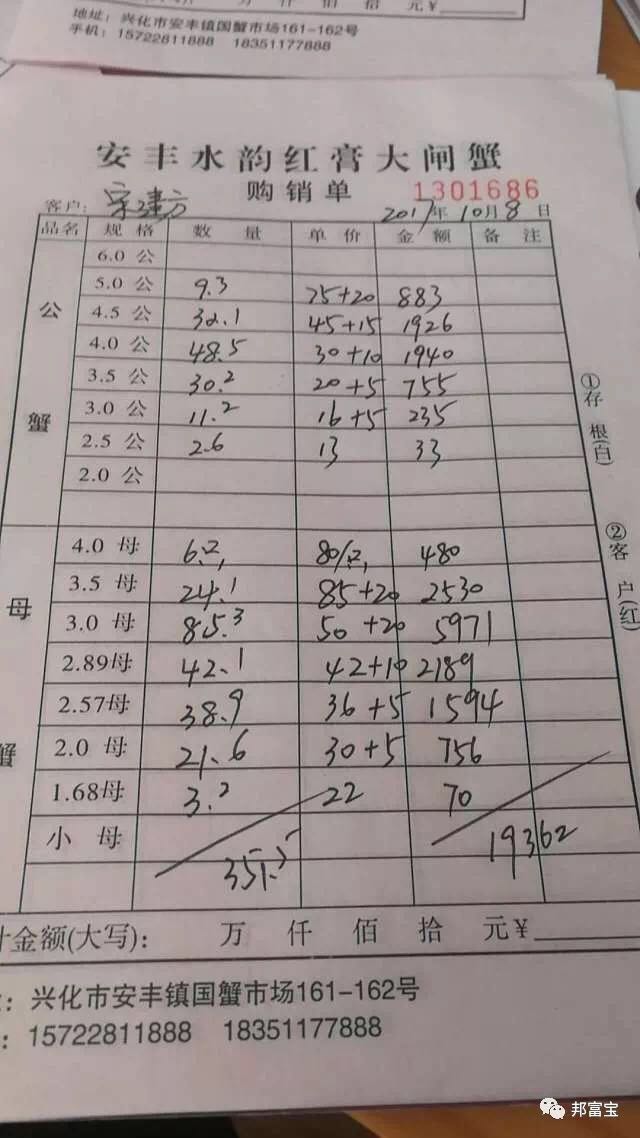 万 仟 佰 拾 元¥
地址：兴化市安丰镇国蟹市场161-162号
手机：15722811888 18351177888
安丰水韵红膏大闸蟹
购销单 1301686
客户：宋建方 2017年10月8日
品名 规格 数量 单价 金额 备注
公蟹
6.0 公
5.0 公 9.3 75+20 883
4.5 公 32.1 45+15 1926
4.0 公 48.5 30+10 1940
3.5 公 30.2 20+5 755
3.0 公 11.2 16+5 235
2.5 公 2.6 13 33
2.0 公
母蟹
4.0 母 480
3.5 母 24.1 85+20 2530
3.0 母 85.3 50+20 5971
2.89母 42.1 42+10 2189
2.57母 38.9 36+5 1594
2.0 母 21.6 30+5 756
1.68母 3.2 22 70
小 母
351.5 19362
①存根(白)
②客户(红)
计金额(大写)： 万 仟 佰 拾 元¥
：兴化市安丰镇国蟹市场161-162号
：15722811888 18351177888
邦富宝